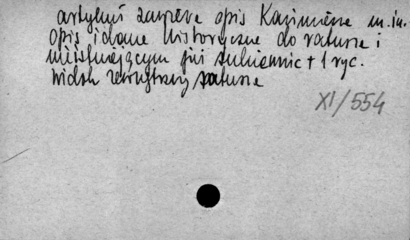 artykuł zawiera opis Kazimierza m.in.
opis i dane historyczne do ratusza i
nieistniejących już sukiennic + 1 ryc.
widok zewnętrzny ratusza
XI/554